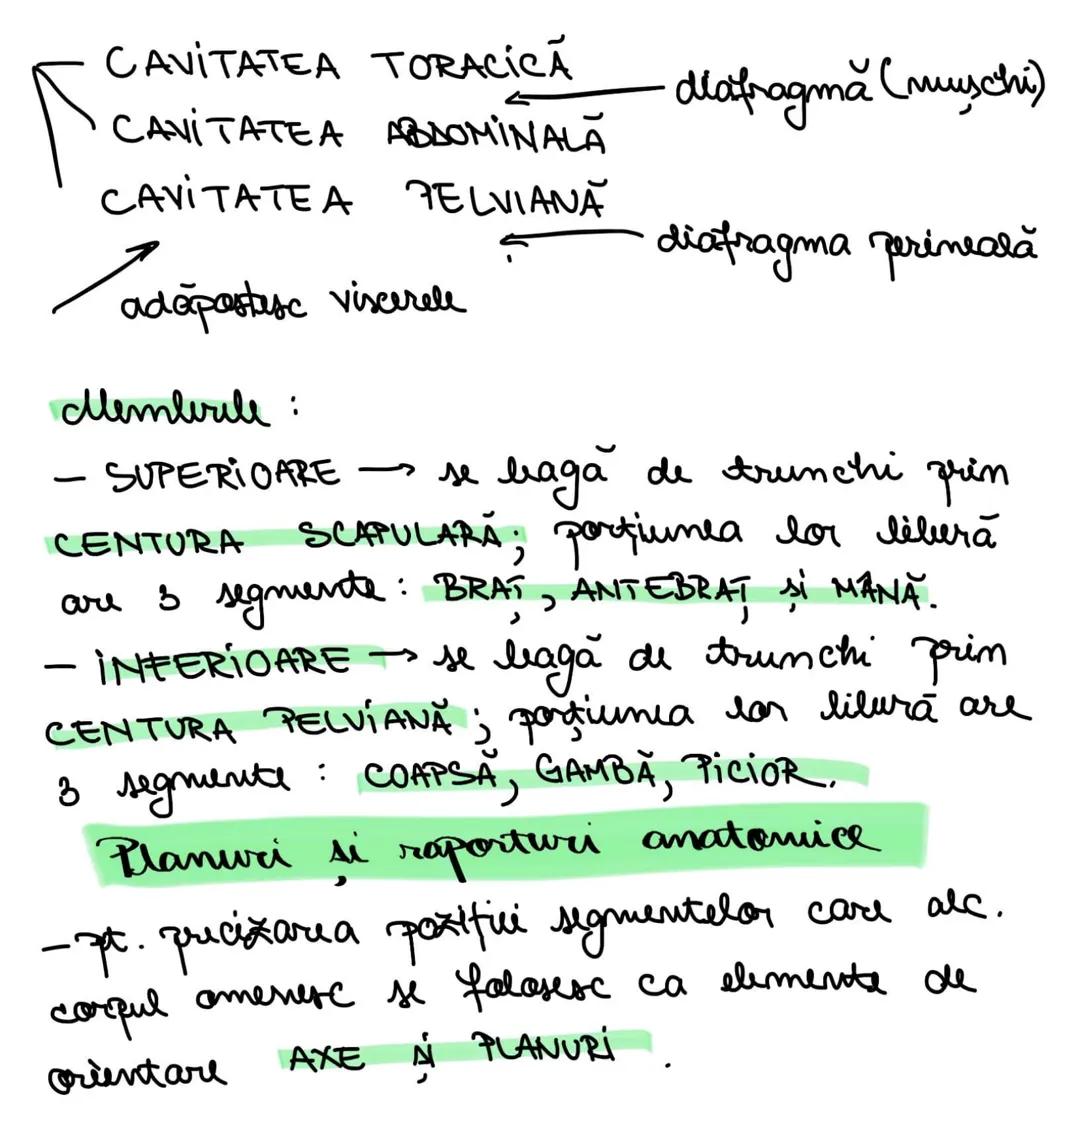 CAVITATEA TORACICĂ
diafragmă (mușchi)
CAVITATEA ABDOMINALĂ
CAVITATEA PELVIANĂ
diafragma perineală
adăpostesc viscerele
Membrele :
- SUPERIOARE → se leagă de trunchi prin
CENTURA SCAPULARĂ; porțiunea lor liberă
are 3 segmente : BRAȚ, ANTEBRAȚ și MÂNĂ.
- INFERIOARE → se leagă de trunchi prin
CENTURA PELVIANĂ ; porțiunea lor liberă are
3 segmente : COAPSĂ, GAMBĂ, PICIOR.
Planuri și raporturi anatomice
- pt. precizarea poziției segmentelor care alc.
corpul omenesc se folosesc ca elemente de
orientare AXE și PLANURI.